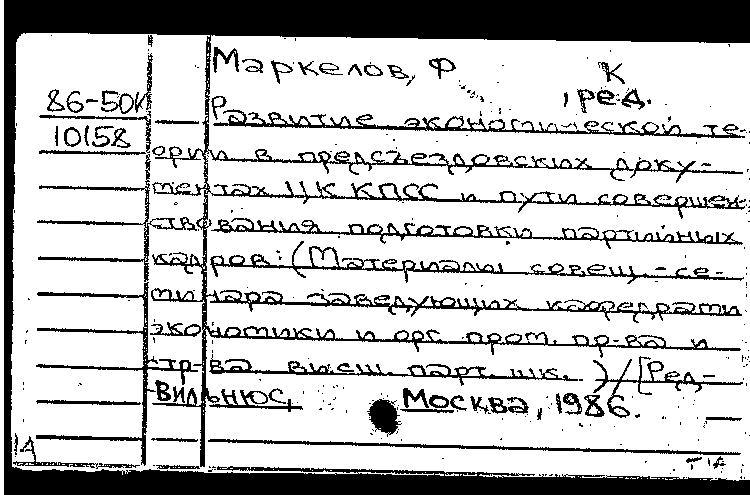 Маркелов, Ф К
86-50К , ред.
Развитие экономической те-
10158
ории в предсъездовских доку-
ментах ЦК КПСС и пути совершен
ствования подготовки партийных
кадров: (Материалы совещ.-се-
минара заведующих кафедрами
экономики и орг. пром. пр-ва и
стр-ва высш. парт. шк. ) / [Ред.-
Вильнюс, Москва, 1986.
1А